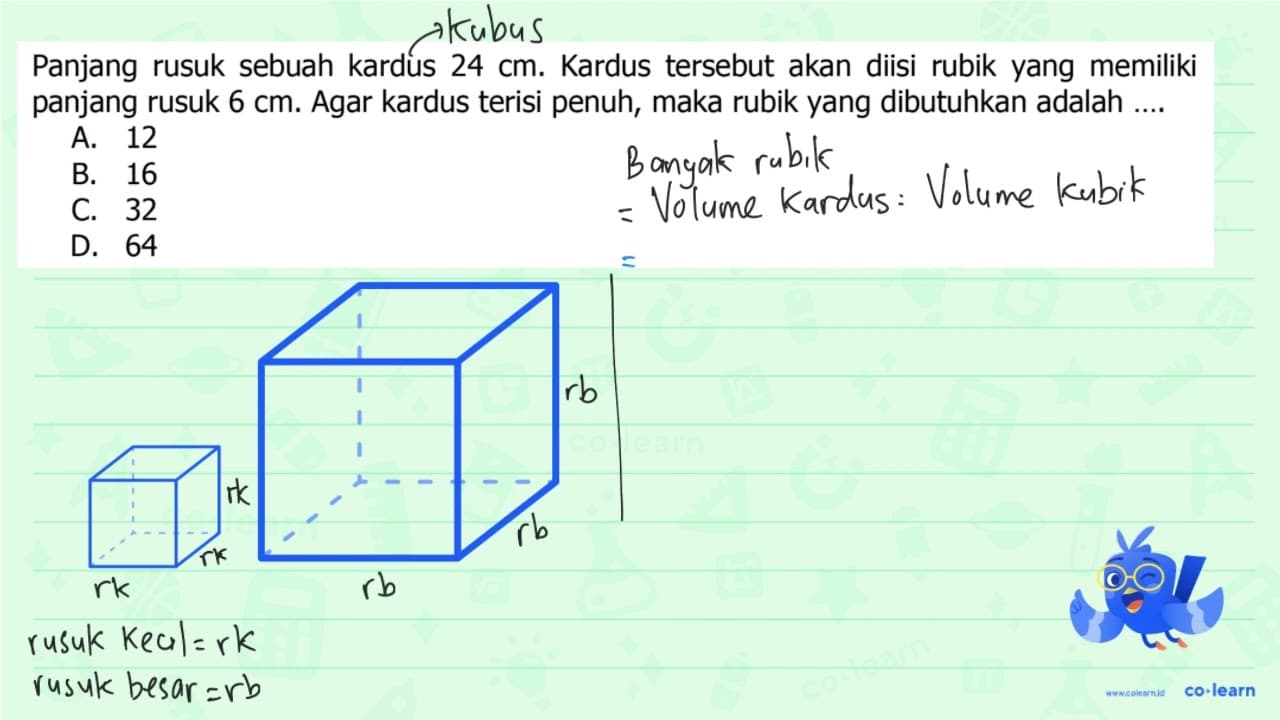 Kubus
Panjang rusuk sebuah kardus 24 cm. Kardus tersebut akan diisi rubik yang memiliki
panjang rusuk 6 cm. Agar kardus terisi penuh, maka rubik yang dibutuhkan adalah ....
A. 12
B. 16
C. 32
D. 64
Banyak rubik
= Volume Kardus : Volume Kubik
=
rb
rk
rk
rb
rk
rb
rusuk kecil = rk
rusuk besar = rb
co-learn
co-learn
www.colearn.id co·learn